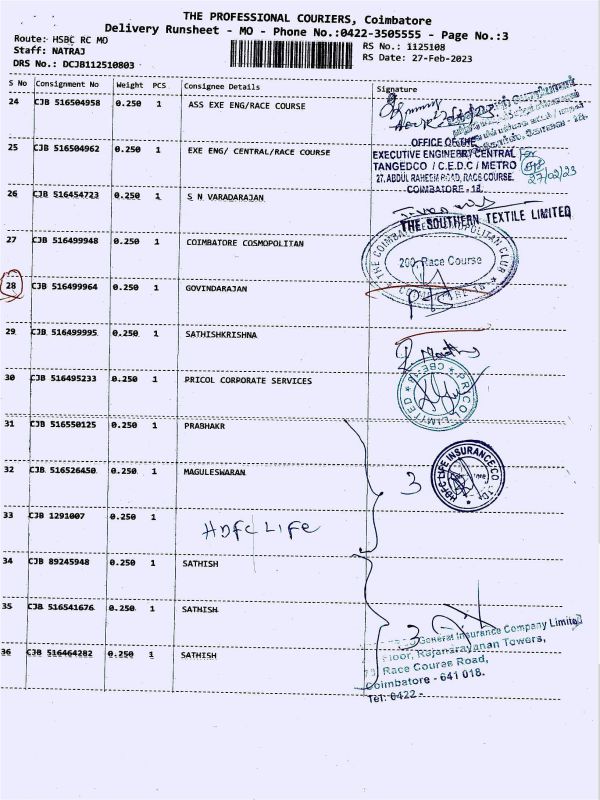 THE PROFESSIONAL COURIERS, Coimbatore
Delivery Runsheet - MO - Phone No.:0422-3505555 - Page No.:3
Route: HSBC RC MO
RS No.: 1125108
Staff: NATRAJ
RS Date: 27-Feb-2023
DRS No.: DCJB112510803
S No Consignment No Weight PCS Consignee Details Signature
24 CJB 516504958 0.250 1 ASS EXE ENG/RACE COURSE
25 CJB 516504962 0.250 1 EXE ENG/ CENTRAL/RACE COURSE
OFFICE OF THE
EXECUTIVE ENGINEER/CENTRAL
TANGEDCO / C.E.D.C / METRO
27, ABDUL RAHEEM ROAD, RACE COURSE.
COIMBATORE - 18.
For
27/02/23
26 CJB 516454723 0.250 1 S N VARADARAJAN
THE SOUTHERN TEXTILE LIMITED
27 CJB 516499948 0.250 1 COIMBATORE COSMOPOLITAN
THE COIMBATORE COSMOPOLITAN CLUB
200, Race Course
28 CJB 516499964 0.250 1 GOVINDARAJAN
29 CJB 516499995 0.250 1 SATHISHKRISHNA
30 CJB 516495233 0.250 1 PRICOL CORPORATE SERVICES
PRICOL LIMITED
CBE-18
31 CJB 516550125 0.250 1 PRABHAKR
32 CJB 516526450 0.250 1 MAGULESWARAN
3
HDFC LIFE INSURANCE CO. LTD.
33 CJB 1291007 0.250 1
HDFC LIFE
34 CJB 89245948 0.250 1 SATHISH
35 CJB 516541676 0.250 1 SATHISH
3
General Insurance Company Limited
Floor, Rajanarayanan Towers,
Race Course Road,
Coimbatore - 641 018.
Tel: 0422 -
36 CJB 516464282 0.250 1 SATHISH